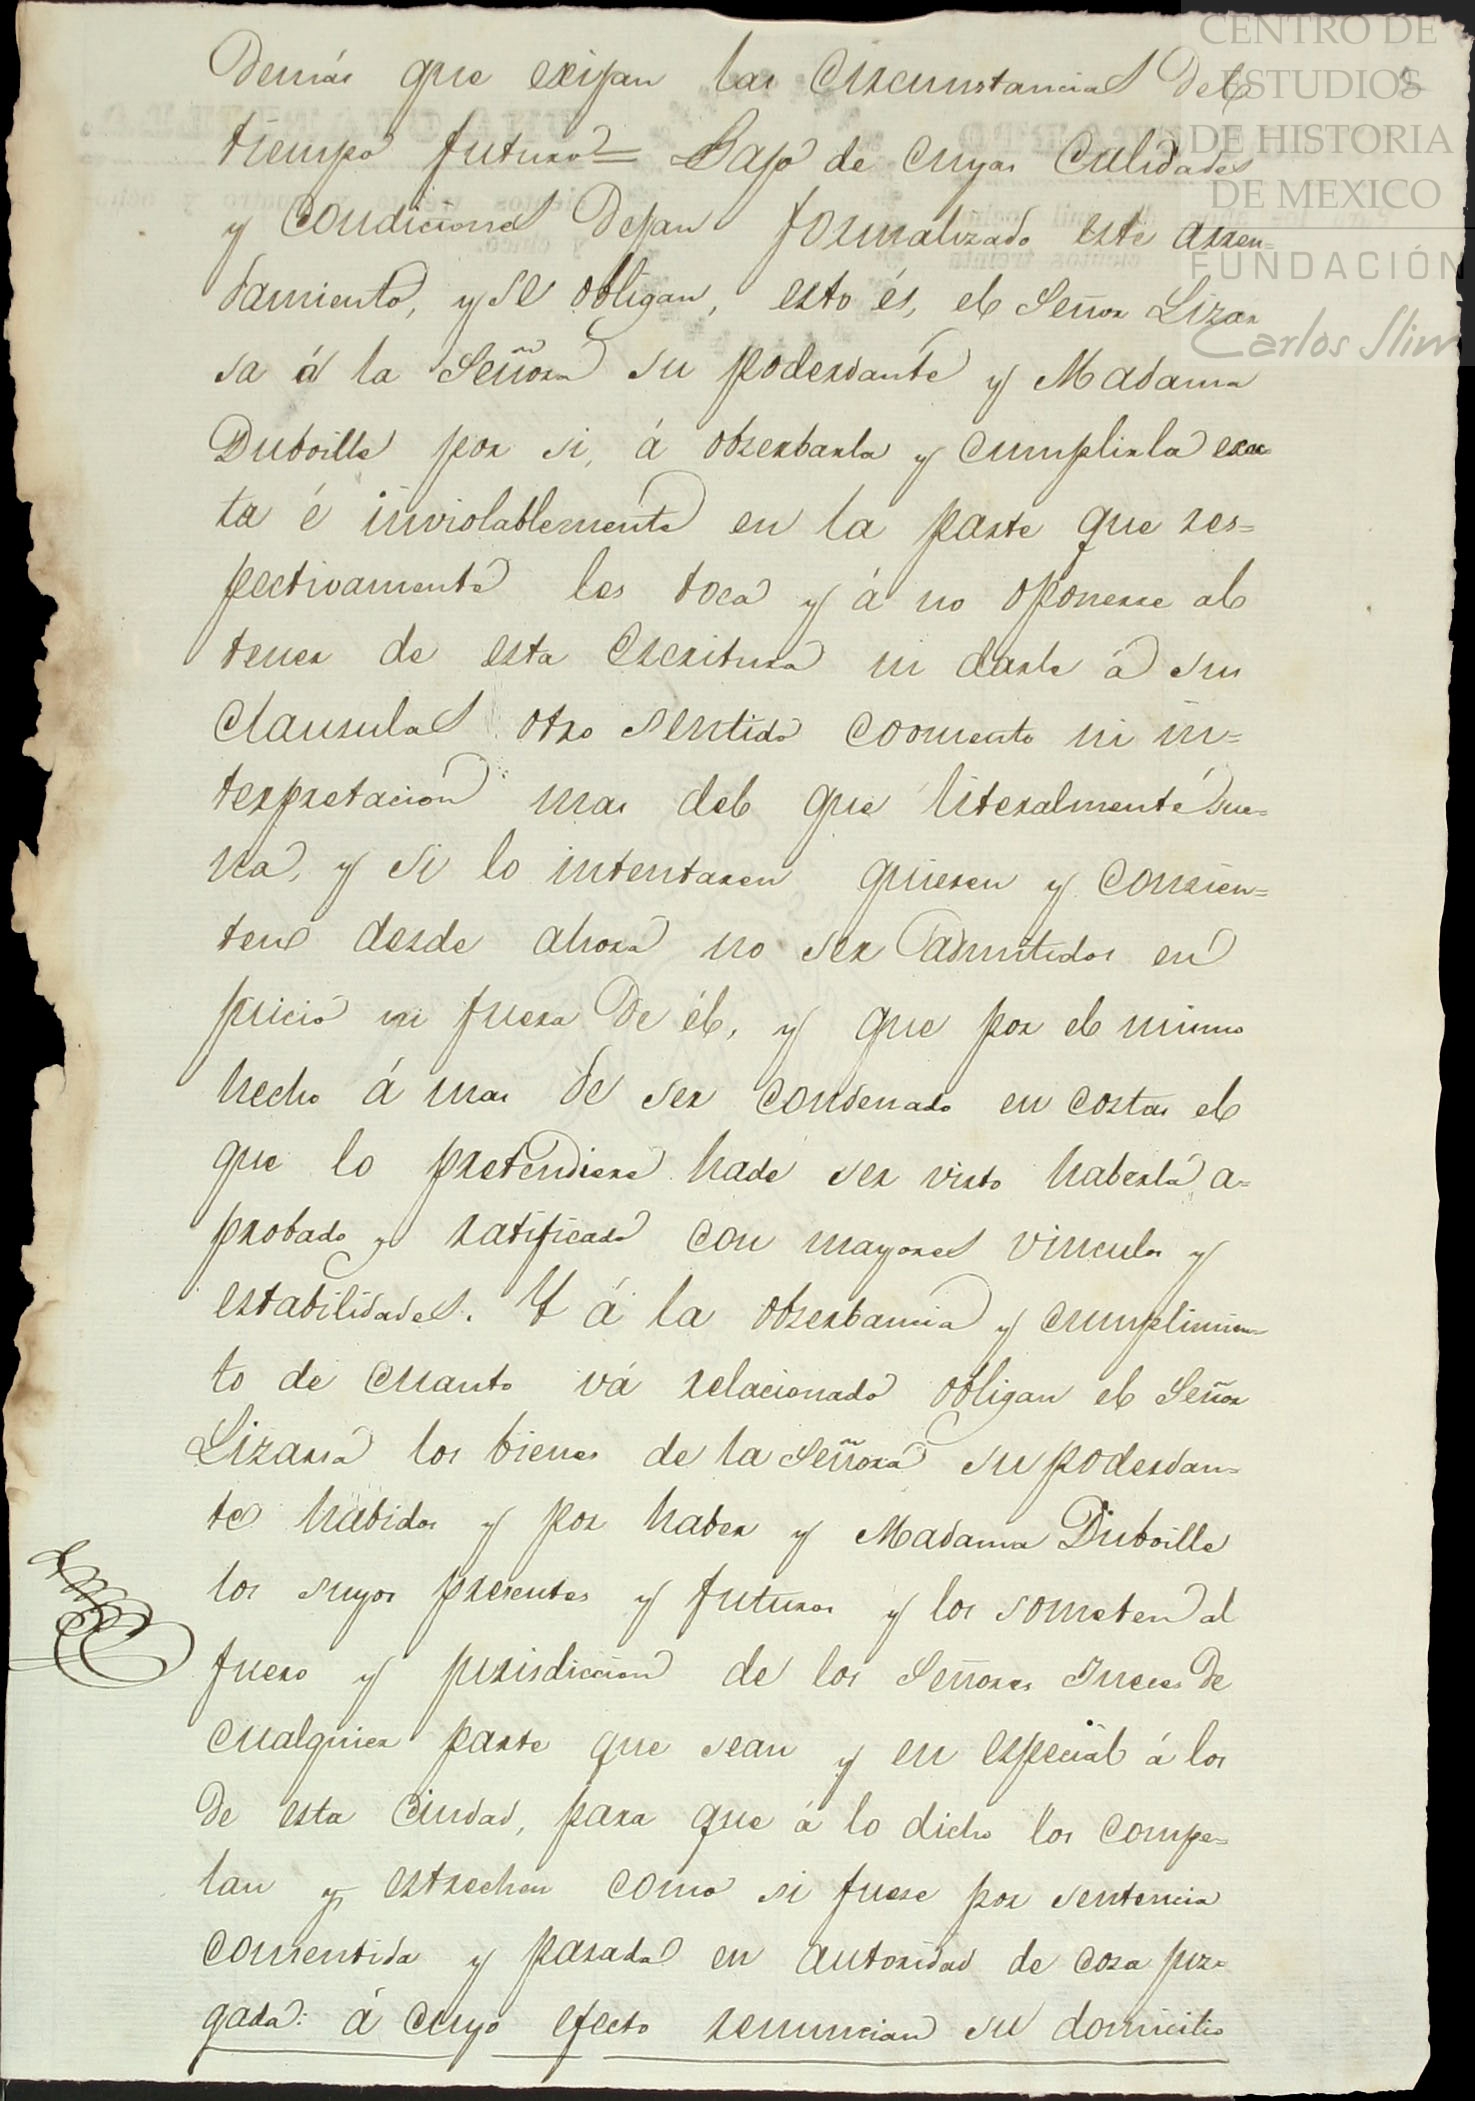 CENTRO DE
ESTUDIOS
DE HISTORIA
DE MEXICO
FUNDACIÓN
Carlos Slim
demás que exijan las circunstancias del
tiempo futuro = Bajo de cuyas calidades
y condiciones dejan formalizado este arren=
damiento, y se obligan, esto és, el Señor Lizar
sa á la Señora su poderdante y Madama
Duboille por si, á obserbarla y cumplirla exac=
ta é inviolablemente en la parte que res=
pectivamente les toca y á no oponerse al
tener de esta escritura ni darle á sus
clausulas otro sentido comento ni in=
terpretacion mas del que literalmente sue=
na, y si lo intentaren quieren y consien=
ten desde ahora no ser admitidos en
juicio ni fuera de él, y que por el mismo
hecho á mas de ser condenado en costas el
que lo pretendiere hade ser visto haberla a=
probado y ratificado con mayores vinculos y
estabilidades. Y á la obserbancia y cumplimien=
to de cuanto vá relacionado obligan el Señor
Lizarsa los bienes de la Señora su poderdan=
te habidos y por haber y Madama Duboille
los suyos presentes y futuros y los someten al
fuero y jurisdiccion de los Señores Jueces de
cualquier parte que sean y en especial á los
de esta ciudad, para que á lo dicho los compe=
lan y estrechen como si fuese por sentencia
consentida y pasada en autoridad de cosa juz=
gada: á cuyo efecto renuncian su domicilio